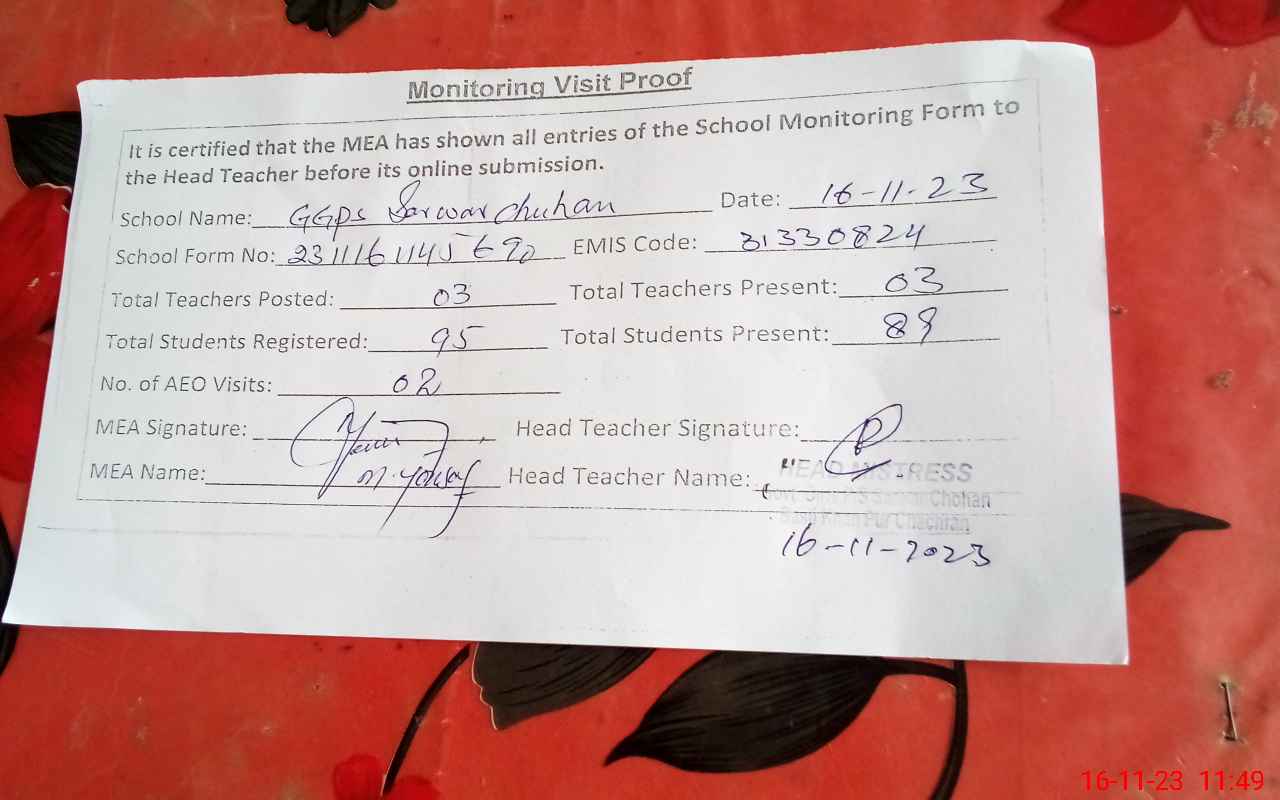 Monitoring Visit Proof
It is certified that the MEA has shown all entries of the School Monitoring Form to
the Head Teacher before its online submission.
School Name: GGPS Sarwar Chuhan Date: 16-11-23
School Form No: 2311161145690 EMIS Code: 31330824
Total Teachers Posted: 03 Total Teachers Present: 03
Total Students Registered: 95 Total Students Present: 89
No. of AEO Visits: 02
MEA Signature: Head Teacher Signature:
MEA Name: M. Yousaf Head Teacher Name: HEAD MISTRESS
Chohan
Pur Chachran
16-11-2023
16-11-23 11:49